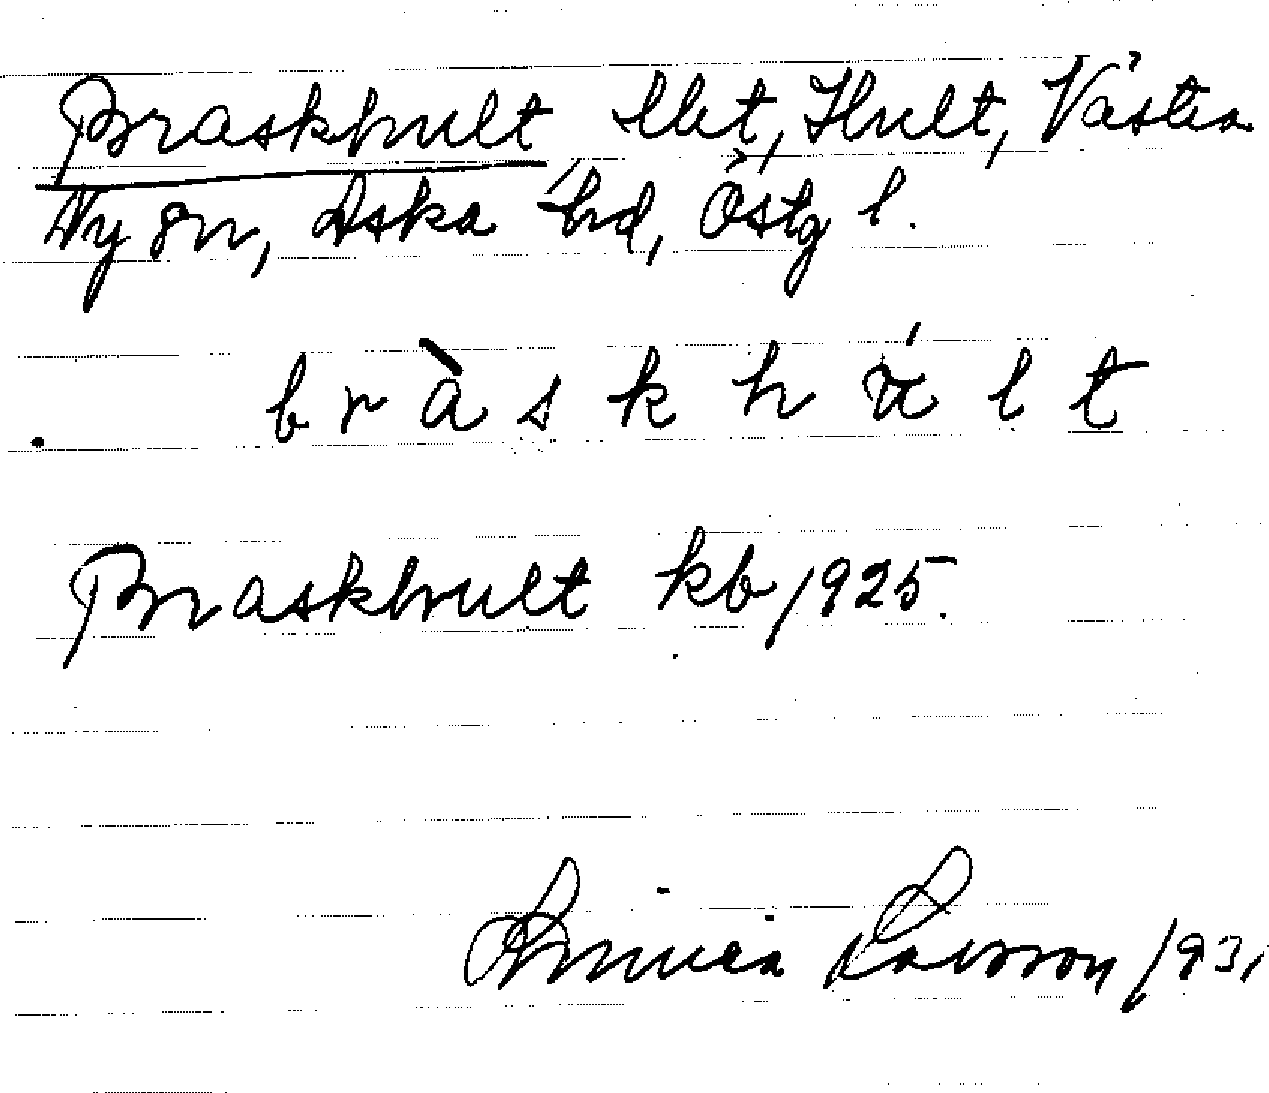 Braskhult lht, Hult, Västra
Ny sn, Aska hd, Östg l.
b r à s k h ú l t
Braskhult kb 1925.
Linnéa Larsson 1931